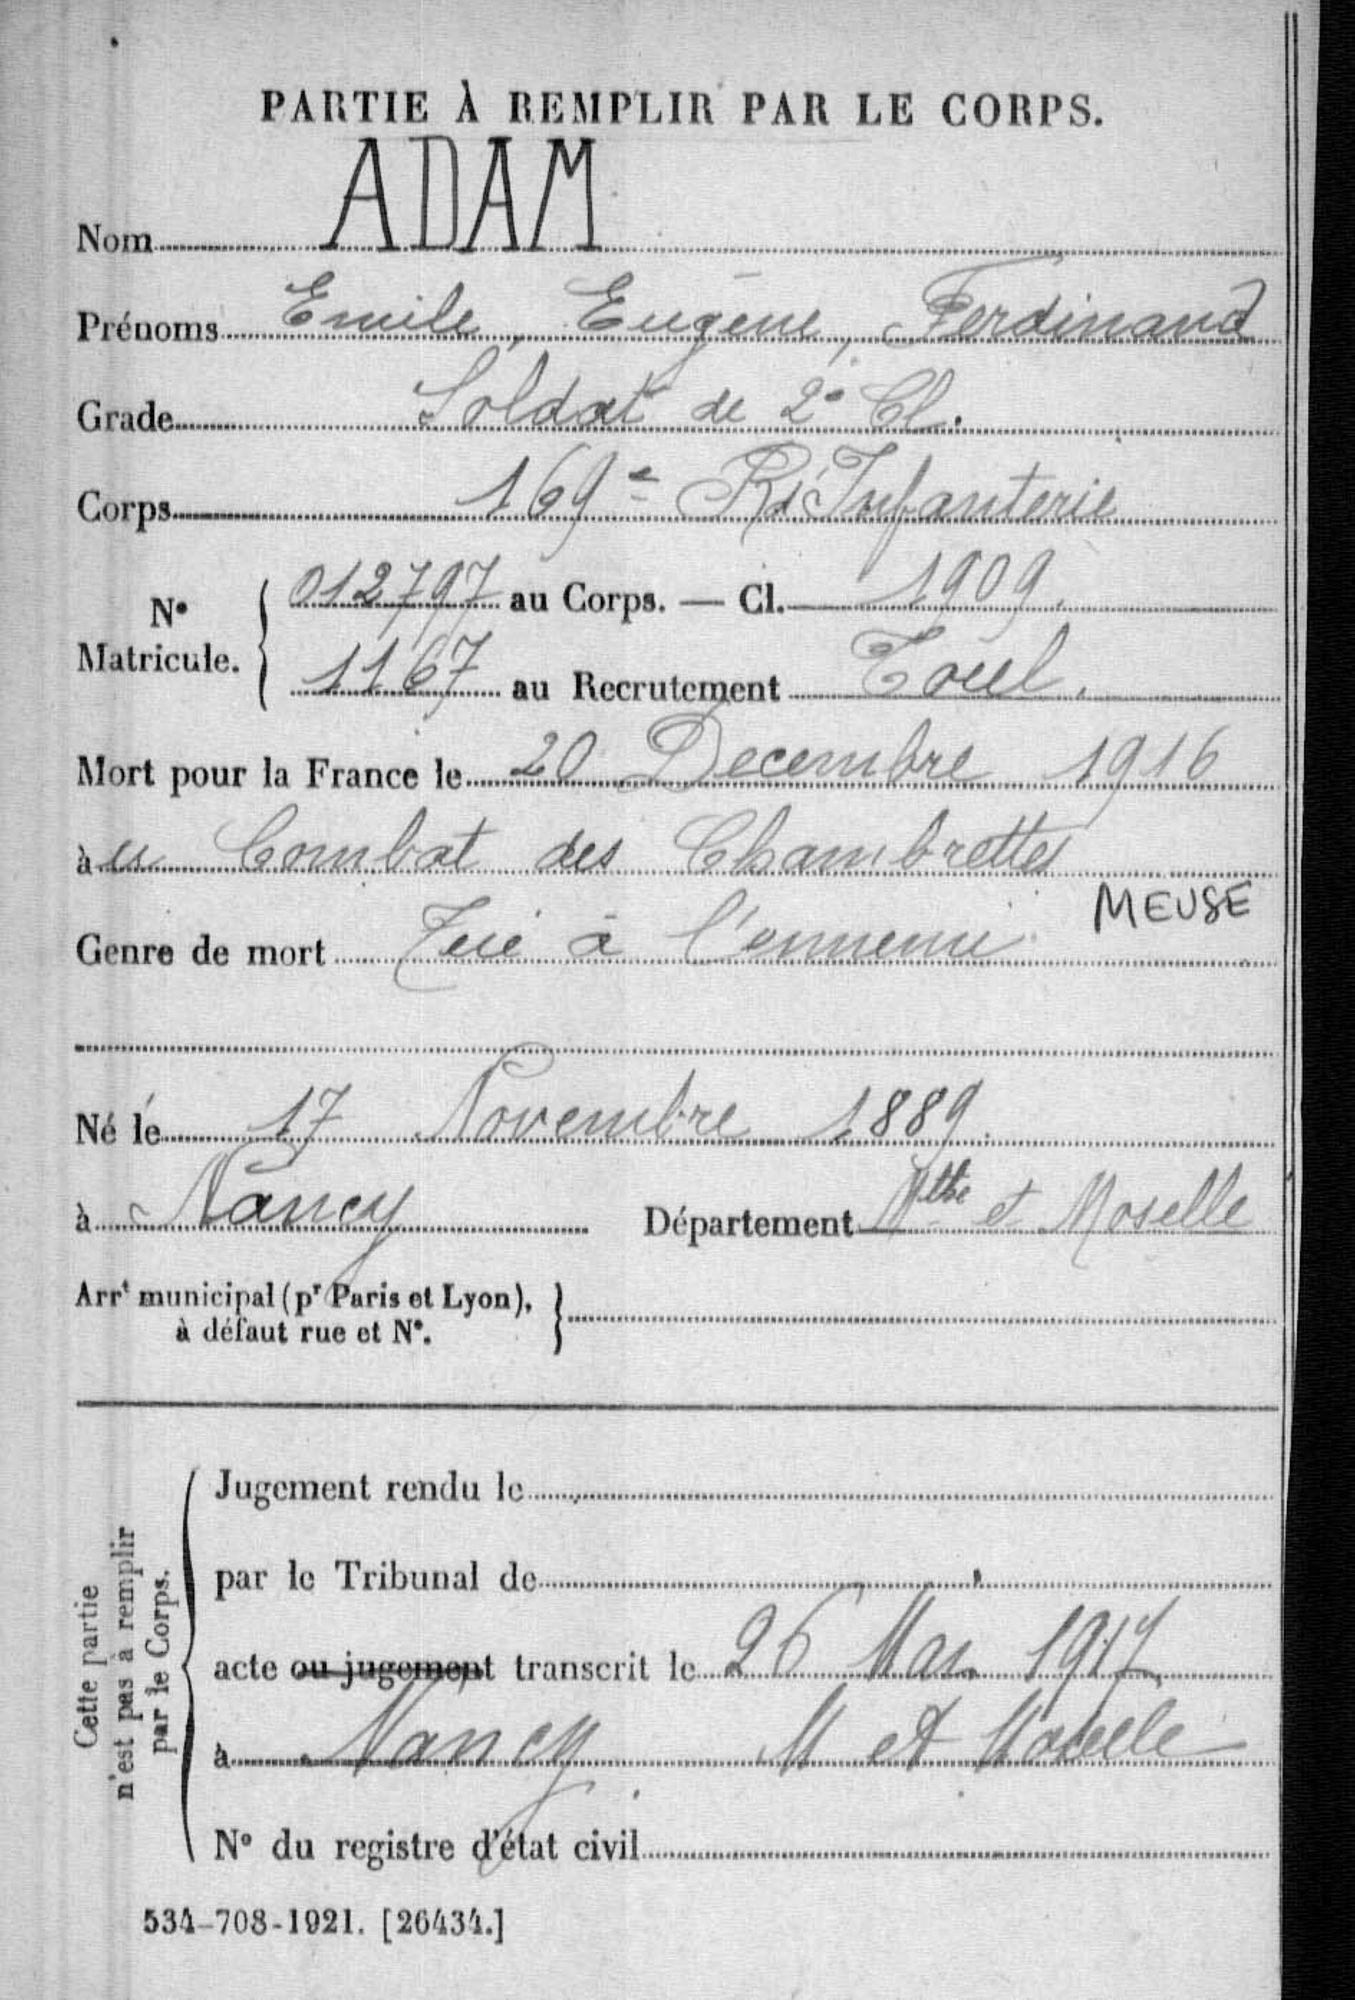 PARTIE À REMPLIR PAR LE CORPS.
Nom ADAM
Prénoms Emile, Eugène, Ferdinand
Grade Soldat de 2e Cl.
Corps 169e R. d'Infanterie
N° Matricule. { 012797 au Corps. — Cl. 1909.
1167 au Recrutement Toul.
Mort pour la France le 20 Decembre 1916
à u Combat des Chambrettes
MEUSE
Genre de mort Tué à l'ennemi
Né le 17 Novembre 1889.
à Nancy Département Mthe et Moselle
Arrt municipal (pr Paris et Lyon), }
à défaut rue et N°.
Cette partie
n'est pas à remplir
par le Corps.
Jugement rendu le
par le Tribunal de
acte ou jugement transcrit le 26 Mai 1917
à Nancy M et Moselle
N° du registre d'état civil
534-708-1921. [26434.]